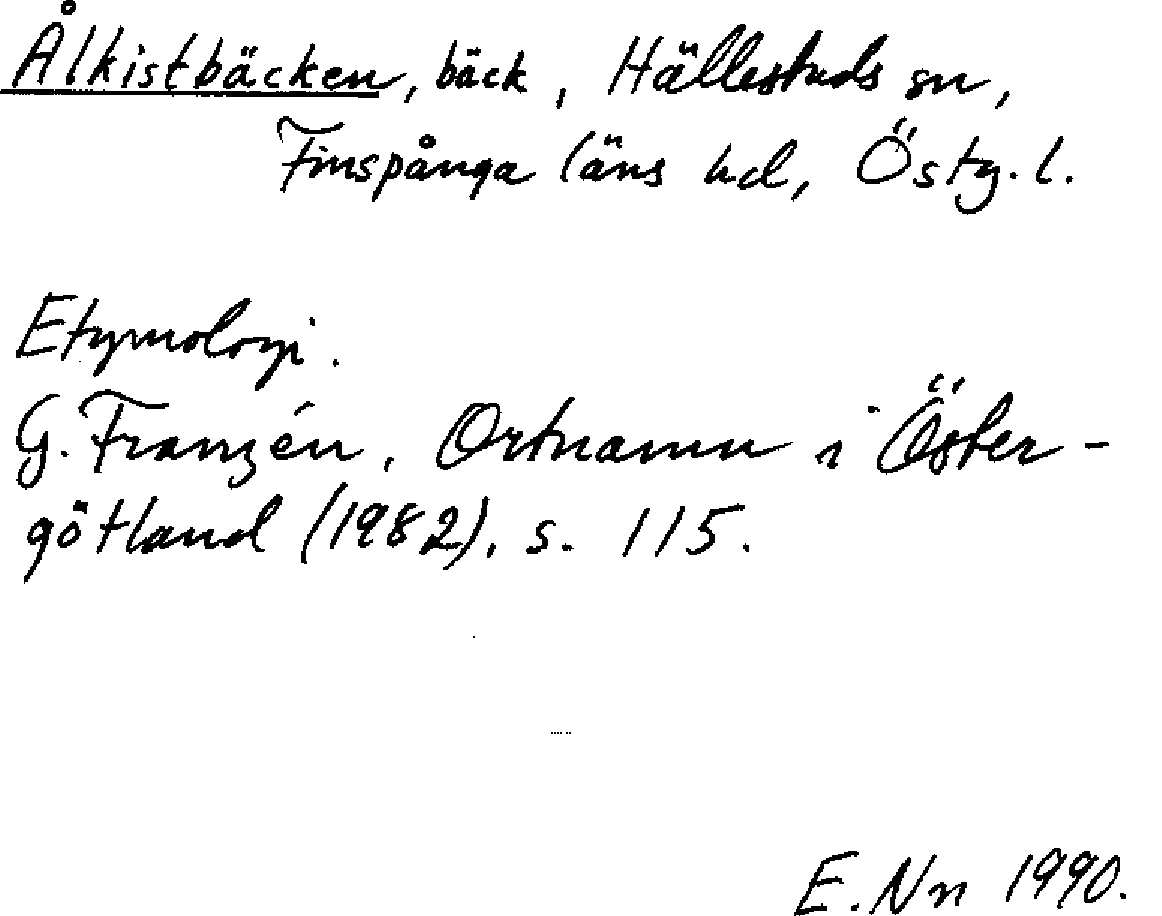 Ålkistbäcken, bäck, Hällestads sn,
Finspånga läns hd, Östg. l.
Etymologi.
G. Franzén, Ortnamn i Öster-
götland (1982), s. 115.
E. Nn 1990.